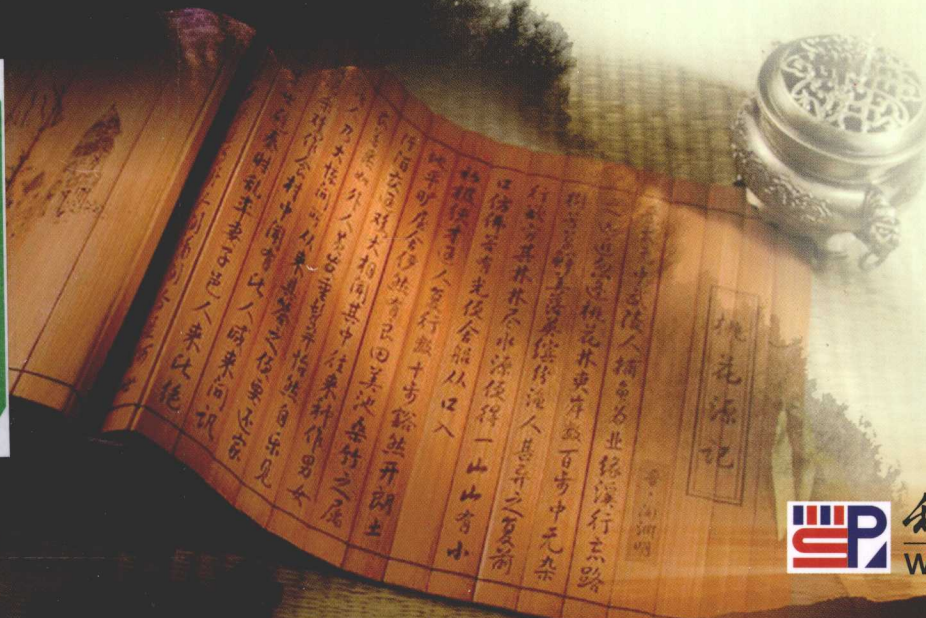 桃花源记
晋·陶渊明
太元中武陵人捕鱼为业缘溪行忘路
之远近忽逢桃花林夹岸数百步中无杂
树芳草鲜美落英缤纷渔人甚异之复前
行欲穷其林林尽水源便得一山山有小
口仿佛若有光便舍船从口入
初极狭才通人复行数十步豁然开朗土
地平旷屋舍俨然有良田美池桑竹之属
阡陌交通鸡犬相闻其中往来种作男女
衣着悉如外人黄发垂髫并怡然自乐见
渔人乃大惊问所从来具答之便要还家
杀鸡作食村中闻有此人咸来问讯
避秦时乱率妻子邑人来此绝
P
W